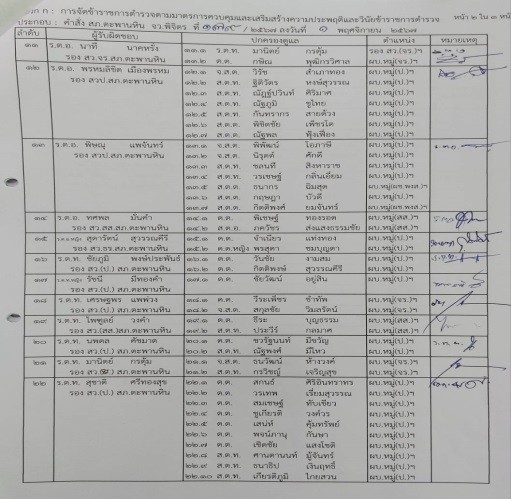 การจัดข้าราชการตำรวจตามมาตรการควบคุมและเสริมสร้างความประพฤติและวินัยข้าราชการตำรวจ หน้า ๒ ใน ๓ หน้า
ประกอบ : คำสั่ง สภ.ตะพานหิน จว.พิจิตร ที่ /๒๕๖๗ ลงวันที่ ๑ พฤศจิกายน ๒๕๖๗
ลำดับ ผู้รับผิดชอบ ปกครองดูแล ตำแหน่ง หมายเหตุ
๑๑ ร.ต.อ. นาที นาคหรั่ง ๑๑.๑ ร.ต.ท. มานิตย์ กรตุ้ม รอง สว.(จร.)ฯ
รอง สว.จร.สภ.ตะพานหิน ๑๑.๒ ด.ต. กษิณ พุฒิกรวิศาล ผบ.หมู่(จร.)ฯ
๑๒ ร.ต.อ. พรหมลิขิต เมืองพรหม ๑๒.๑ จ.ส.ต. วิรัช สำเภาทอง ผบ.หมู่(ป.)ฯ
รอง สวป.สภ.ตะพานหิน ๑๒.๒ ส.ต.ท. ฐิติวัตร หงษ์สุวรรณ ผบ.หมู่(ป.)ฯ
๑๒.๓ ส.ต.ท. ณัฏฐ์ปวินท์ ศิริมาศ ผบ.หมู่(ป.)ฯ
๑๒.๔ ส.ต.ต. ณัฐภูมิ ชูไทย ผบ.หมู่(ป.)ฯ
๑๒.๕ ส.ต.ต. กันทรากร สายด้วง ผบ.หมู่(ป.)ฯ
๑๒.๖ ส.ต.ต. พิชิตชัย เพ็ชรโต ผบ.หมู่(ป.)ฯ
๑๒.๗ ส.ต.ต. ณัฐพล ฟุ้งเฟื่อง ผบ.หมู่(ป.)ฯ
๑๓ ร.ต.อ. พิษณุ แพจันทร์ ๑๓.๑ จ.ส.ต. พิพัฒน์ โอภาษี ผบ.หมู่(ป.)ฯ
รอง สวป.สภ.ตะพานหิน ๑๓.๒ จ.ส.ต. นิรุตต์ ศักดี ผบ.หมู่(ป.)ฯ
๑๓.๓ ส.ต.ท. ชลนที สิงหาราช ผบ.หมู่(ป.)ฯ
๑๓.๔ ส.ต.ท. วรเชษฐ์ กลิ่นเอี่ยม ผบ.หมู่(ป.)ฯ
๑๓.๕ ส.ต.ต. ธนากร ฉิมสุด
๑๓.๖ ส.ต.ต. กฤษฎา บัวดี ผบ.หมู่(ป.)ฯ
๑๓.๗ ส.ต.ต. กิตติพงศ์ ยมจันทร์
๑๔ ร.ต.อ. ทศพล มั่นคำ ๑๔.๑ ด.ต. พิเชษฐ์ ทองรอด ผบ.หมู่(สส.)ฯ
รอง สว.สส.สภ.ตะพานหิน ๑๔.๒ ส.ต.อ. ภควัชร ส่งแสงธรรมชัย ผบ.หมู่(สส.)ฯ
๑๕ สุดารัตน์ สุวรรณศิริ ๑๕.๑ ด.ต. จำเนียร แท่งทอง ผบ.หมู่(ป.)ฯ
รอง สว.ธร.สภ.ตะพานหิน ๑๕.๒ ด.ต.หญิง พรสุดา ชมบุญตา ผบ.หมู่(ป.)ฯ
๑๖ ร.ต.ท. ชัยภูมิ พงษ์ประพันธ์ ๑๖.๑ ด.ต. วันชัย งามสม ผบ.หมู่(ป.)ฯ
รอง สว.(ป.) สภ.ตะพานหิน ๑๖.๒ ด.ต. กิตติพงษ์ สุวรรณศิริ ผบ.หมู่(ป.)ฯ
๑๗ รัชนี มีทองคำ ๑๗.๑ ด.ต. ชัยวัฒน์ อยู่สิน ผบ.หมู่(ป.)ฯ
รอง สว.(ป.) สภ.ตะพานหิน
๑๘ ร.ต.ท. เศรษฐพร แพพ่วง ๑๘.๑ ด.ต. วีระเพ็ชร ชำทัพ ผบ.หมู่(จร.)ฯ
รอง สว.(ป.) สภ.ตะพานหิน ๑๘.๒ จ.ส.ต. สกุลชัย วิมลรัตน์ ผบ.หมู่(จร.)ฯ
๑๙ ร.ต.ท. ไพฑูลย์ วงคำ ๑๙.๑ ด.ต. ธีระ บุญธรรม ผบ.หมู่(สส.)ฯ
รอง สว.(สส.)สภ.ตะพานหิน ๑๙.๒ ส.ต.ท. ประวีร์ กลมาศ ผบ.หมู่(สส.)ฯ
๒๐ ร.ต.ท. นพดล คัชมาต ๒๐.๑ ด.ต. ชวรัฐนนท์ มีขวัญ ผบ.หมู่(ป.)ฯ
รอง สว.(ป.) สภ.ตะพานหิน ๒๐.๒ ส.ต.ท. ณัฐพงศ์ มีไหว ผบ.หมู่(ป.)ฯ
๒๑ ร.ต.ท. มานิตย์ กรตุ้ม ๒๑.๑ จ.ส.ต. ธนวัฒน์ ห้างวงค์ ผบ.หมู่(จร.)ฯ
รอง สว.( .) สภ.ตะพานหิน ๒๑.๒ ส.ต.ท. กรวิชญ์ เจริญสุข ผบ.หมู่(จร.)ฯ
๒๒ ร.ต.ท. สุชาติ ศรีทองสุข ๒๒.๑ ด.ต. สกนธ์ ศิริอินทราทร ผบ.หมู่(ป.)ฯ
รอง สว.(ป.) สภ.ตะพานหิน ๒๒.๒ ด.ต. วรเทพ เรี่ยมสุวรรณ ผบ.หมู่(ป.)ฯ
๒๒.๓ ด.ต. สมเชษฐ์ ทับเขียว ผบ.หมู่(ป.)ฯ
๒๒.๔ ด.ต. ชูเกียรติ วงค์วร ผบ.หมู่(ป.)ฯ
๒๒.๕ ด.ต. เสน่ห์ คุ้มทรัพย์ ผบ.หมู่(ป.)ฯ
๒๒.๖ ด.ต. พจน์ภาณุ กันษา ผบ.หมู่(ป.)ฯ
๒๒.๗ ด.ต. เชิดชัย แสงโชติ ผบ.หมู่(ป.)ฯ
๒๒.๘ ส.ต.ต. ศานตานนท์ ผู้จันทร์ ผบ.หมู่(ป.)ฯ
๒๒.๙ ส.ต.ต. ธนาธิป เงินฤทธิ์ ผบ.หมู่(ป.)ฯ
๒๒.๑๐ ส.ต.ต. เกียรติภูมิ ไกยสวน ผบ.หมู่(ป.)ฯ